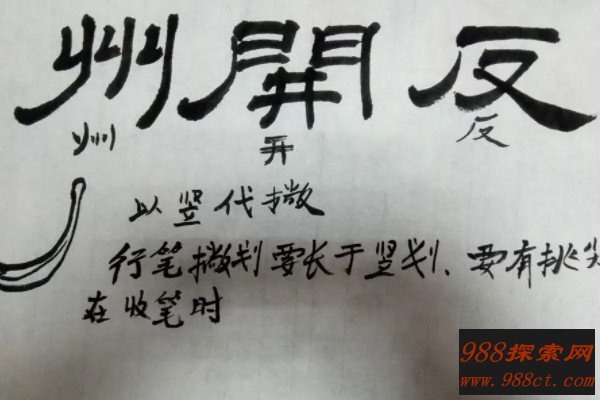 州 開 反
州 开 反
以竖代撇
行笔撇划要长于竖划、要有挑尖
在收笔时
988探索网
www.988ct.com